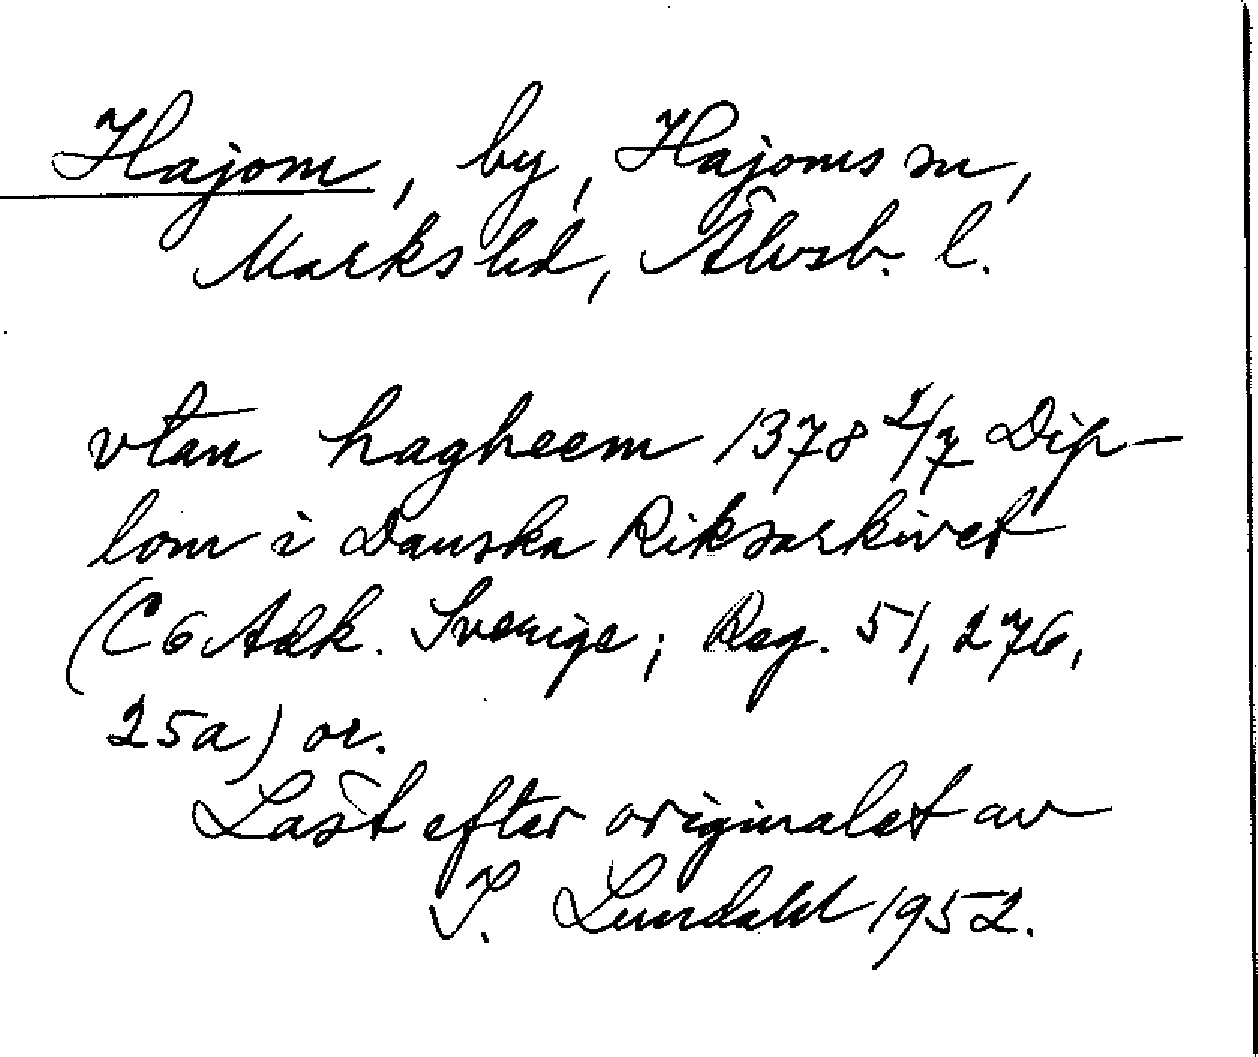 Hajom, by, Hajoms sn,
Marks hd, Älvsb. l.
vtan hagheem 1378 2/7 Dip-
lom i Danska Riksarkivet
(C6 Adk. Sverige; Reg. 51, 276,
25a) or.
Läst efter originalet av
I. Lundahl 1952.